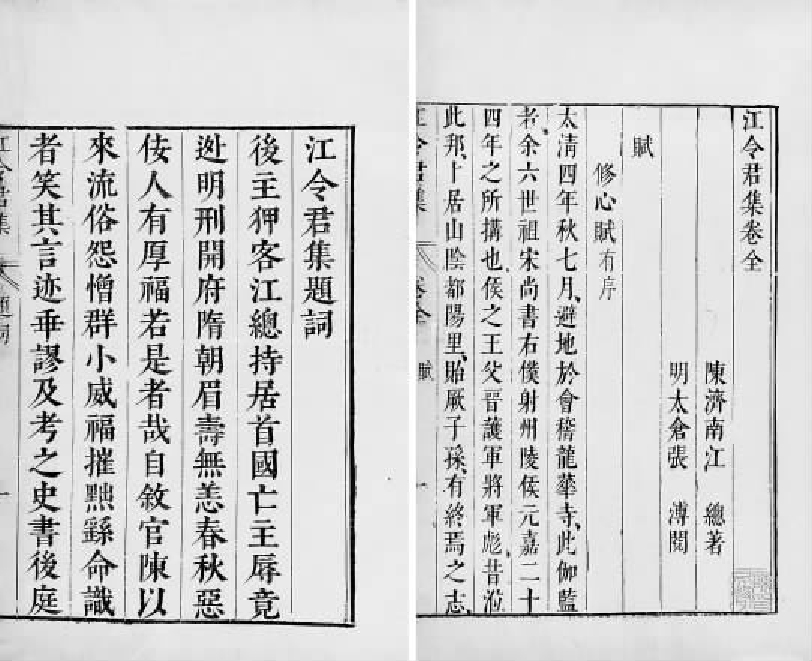 江令君集題詞
後主狎客江總持居首國亡主辱竟
迯明刑開府隋朝眉壽無恙春秋惡
佞人有厚福若是者哉自敘官陳以
來流俗怨憎群小威福摧黜繇命識
者笑其言迹乖謬及考之史書後庭
江令君集 題詞 一
江令君集卷全
陳濟南江 總著
明太倉張 溥閱
賦
修心賦有序
太清四年秋七月、避地於會稽龍華寺、此伽藍
者、余六世祖宋尚書右僕射州陵侯元嘉二十
四年之所搆也、侯之王父晉護軍將軍彪、昔涖
此邦、卜居山陰都陽里、貽厥子孫、有終焉之志、
江令君集 卷全 賦 一